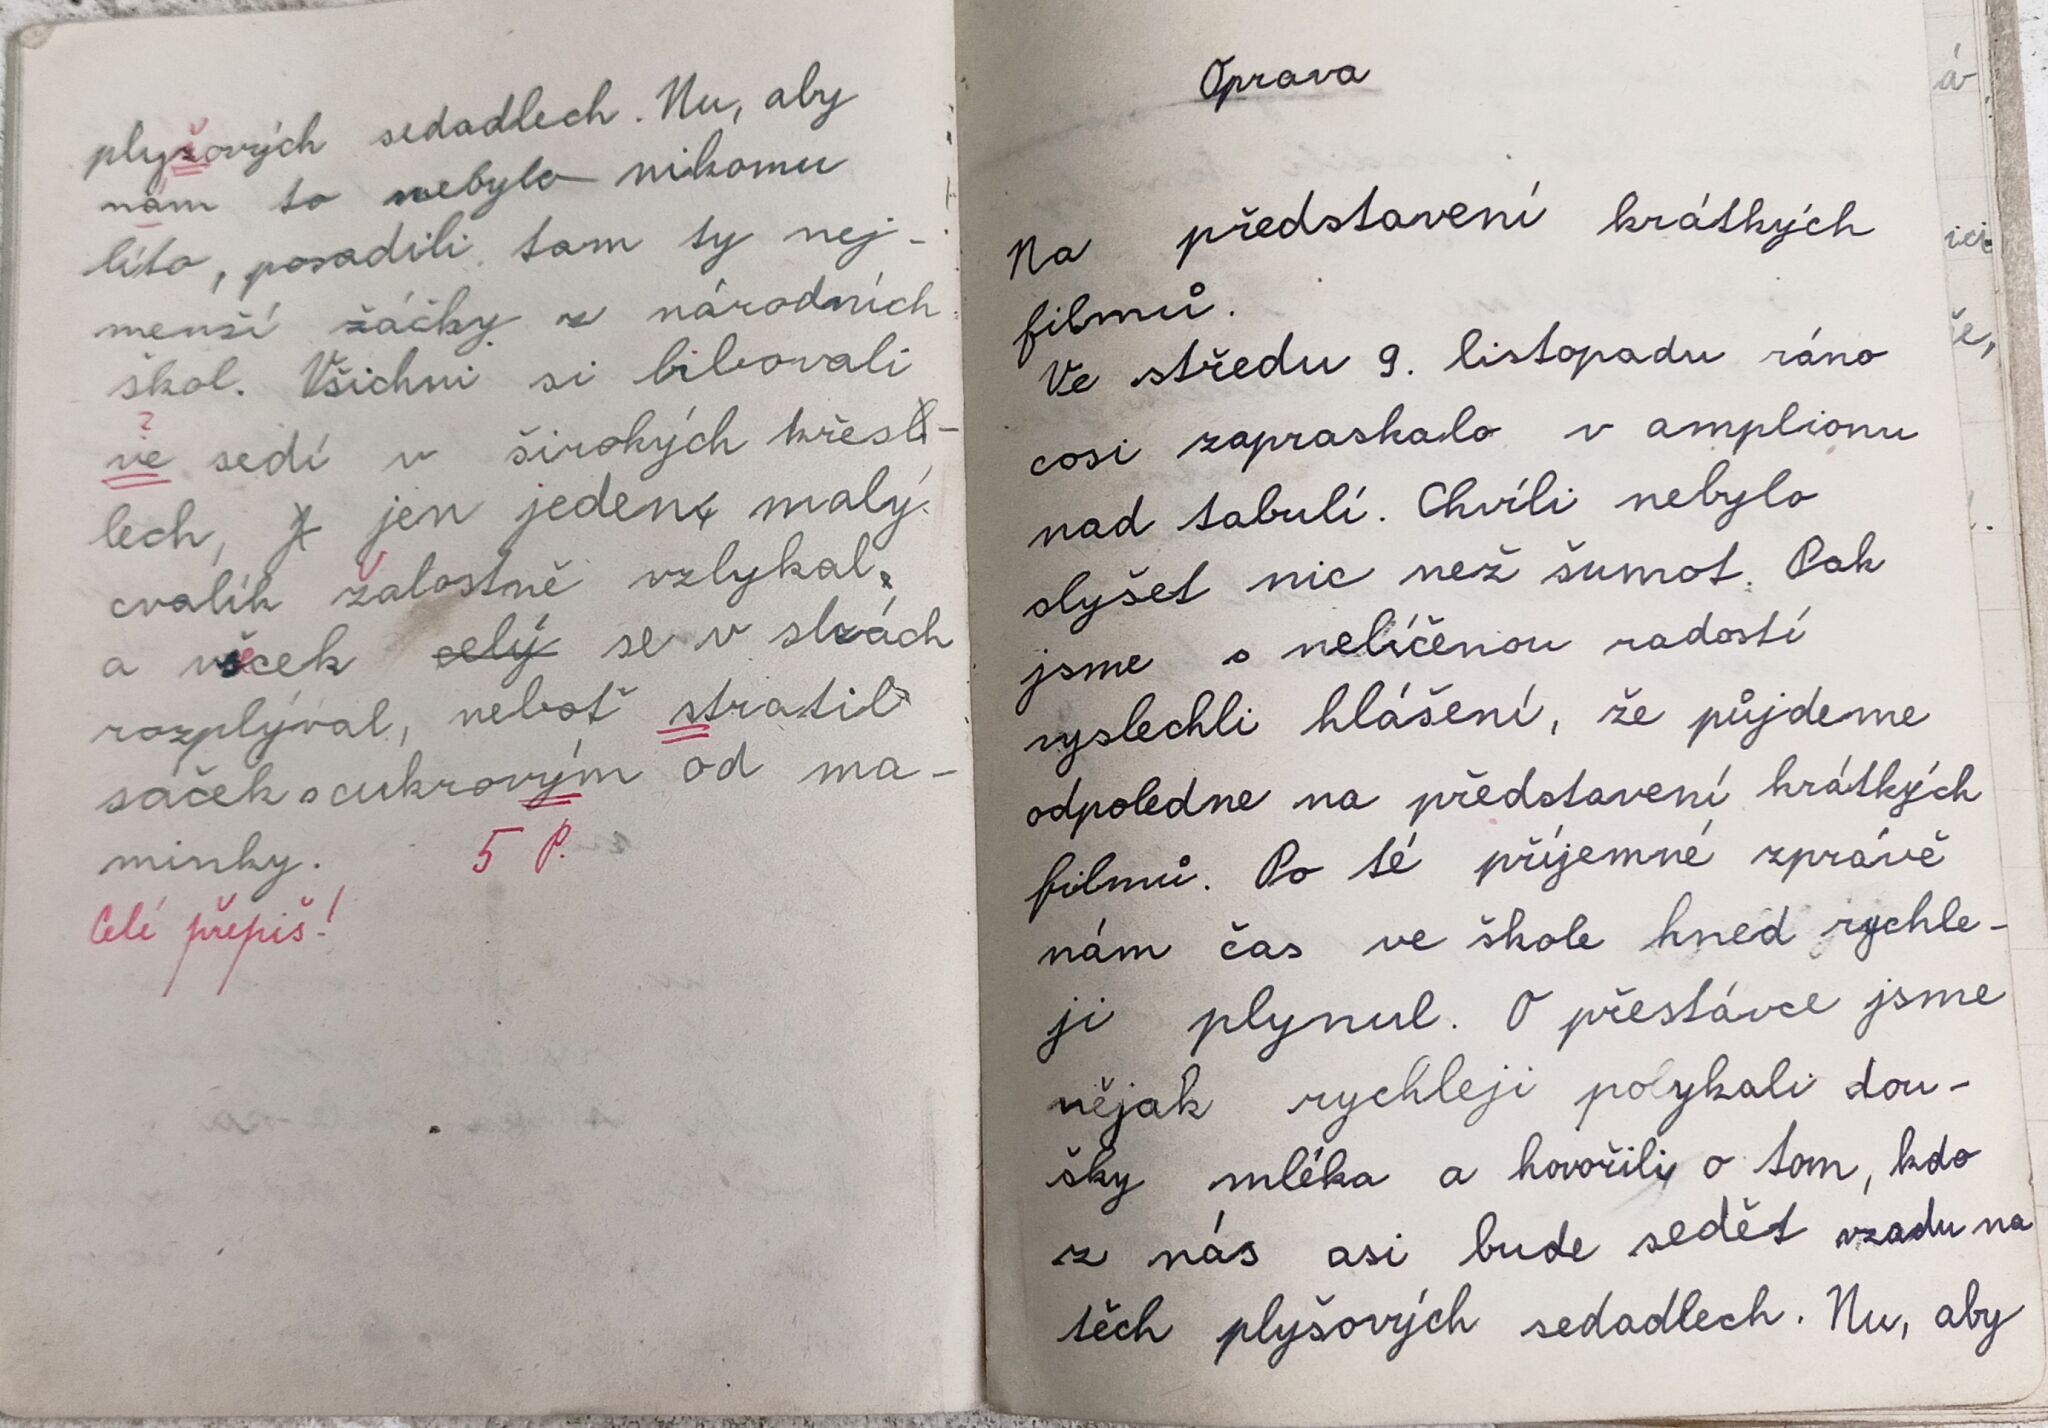 plyšových sedadlech. Nu, aby
nám to nebylo nikomu
líto, posadili tam ty nej-
menší žáčky z národních
škol. Všichni si libovali
?
vě sedí v širokých křesl-
lech, jen jeden malý
cvalík žalostně vzlykal,
a všecek celý se v slzách
rozplýval, neboť stratil
sáček s cukrovým od ma-
minky.
5 P.
Celé přepiš!
Oprava
Na představení krátkých
filmů.
Ve středu 9. listopadu ráno
cosi zapraskalo v amplionu
nad tabulí. Chvíli nebylo
slyšet nic než šumot. Pak
jsme s nelíčenou radostí
vyslechli hlášení, že půjdeme
odpoledne na představení krátkých
filmů. Po té příjemné zprávě
nám čas ve škole hned rychle-
ji plynul. O přestávce jsme
nějak rychleji polykali dou-
šky mléka a hovořili o tom, kdo
z nás asi bude sedět vzadu na
těch plyšových sedadlech. Nu, aby